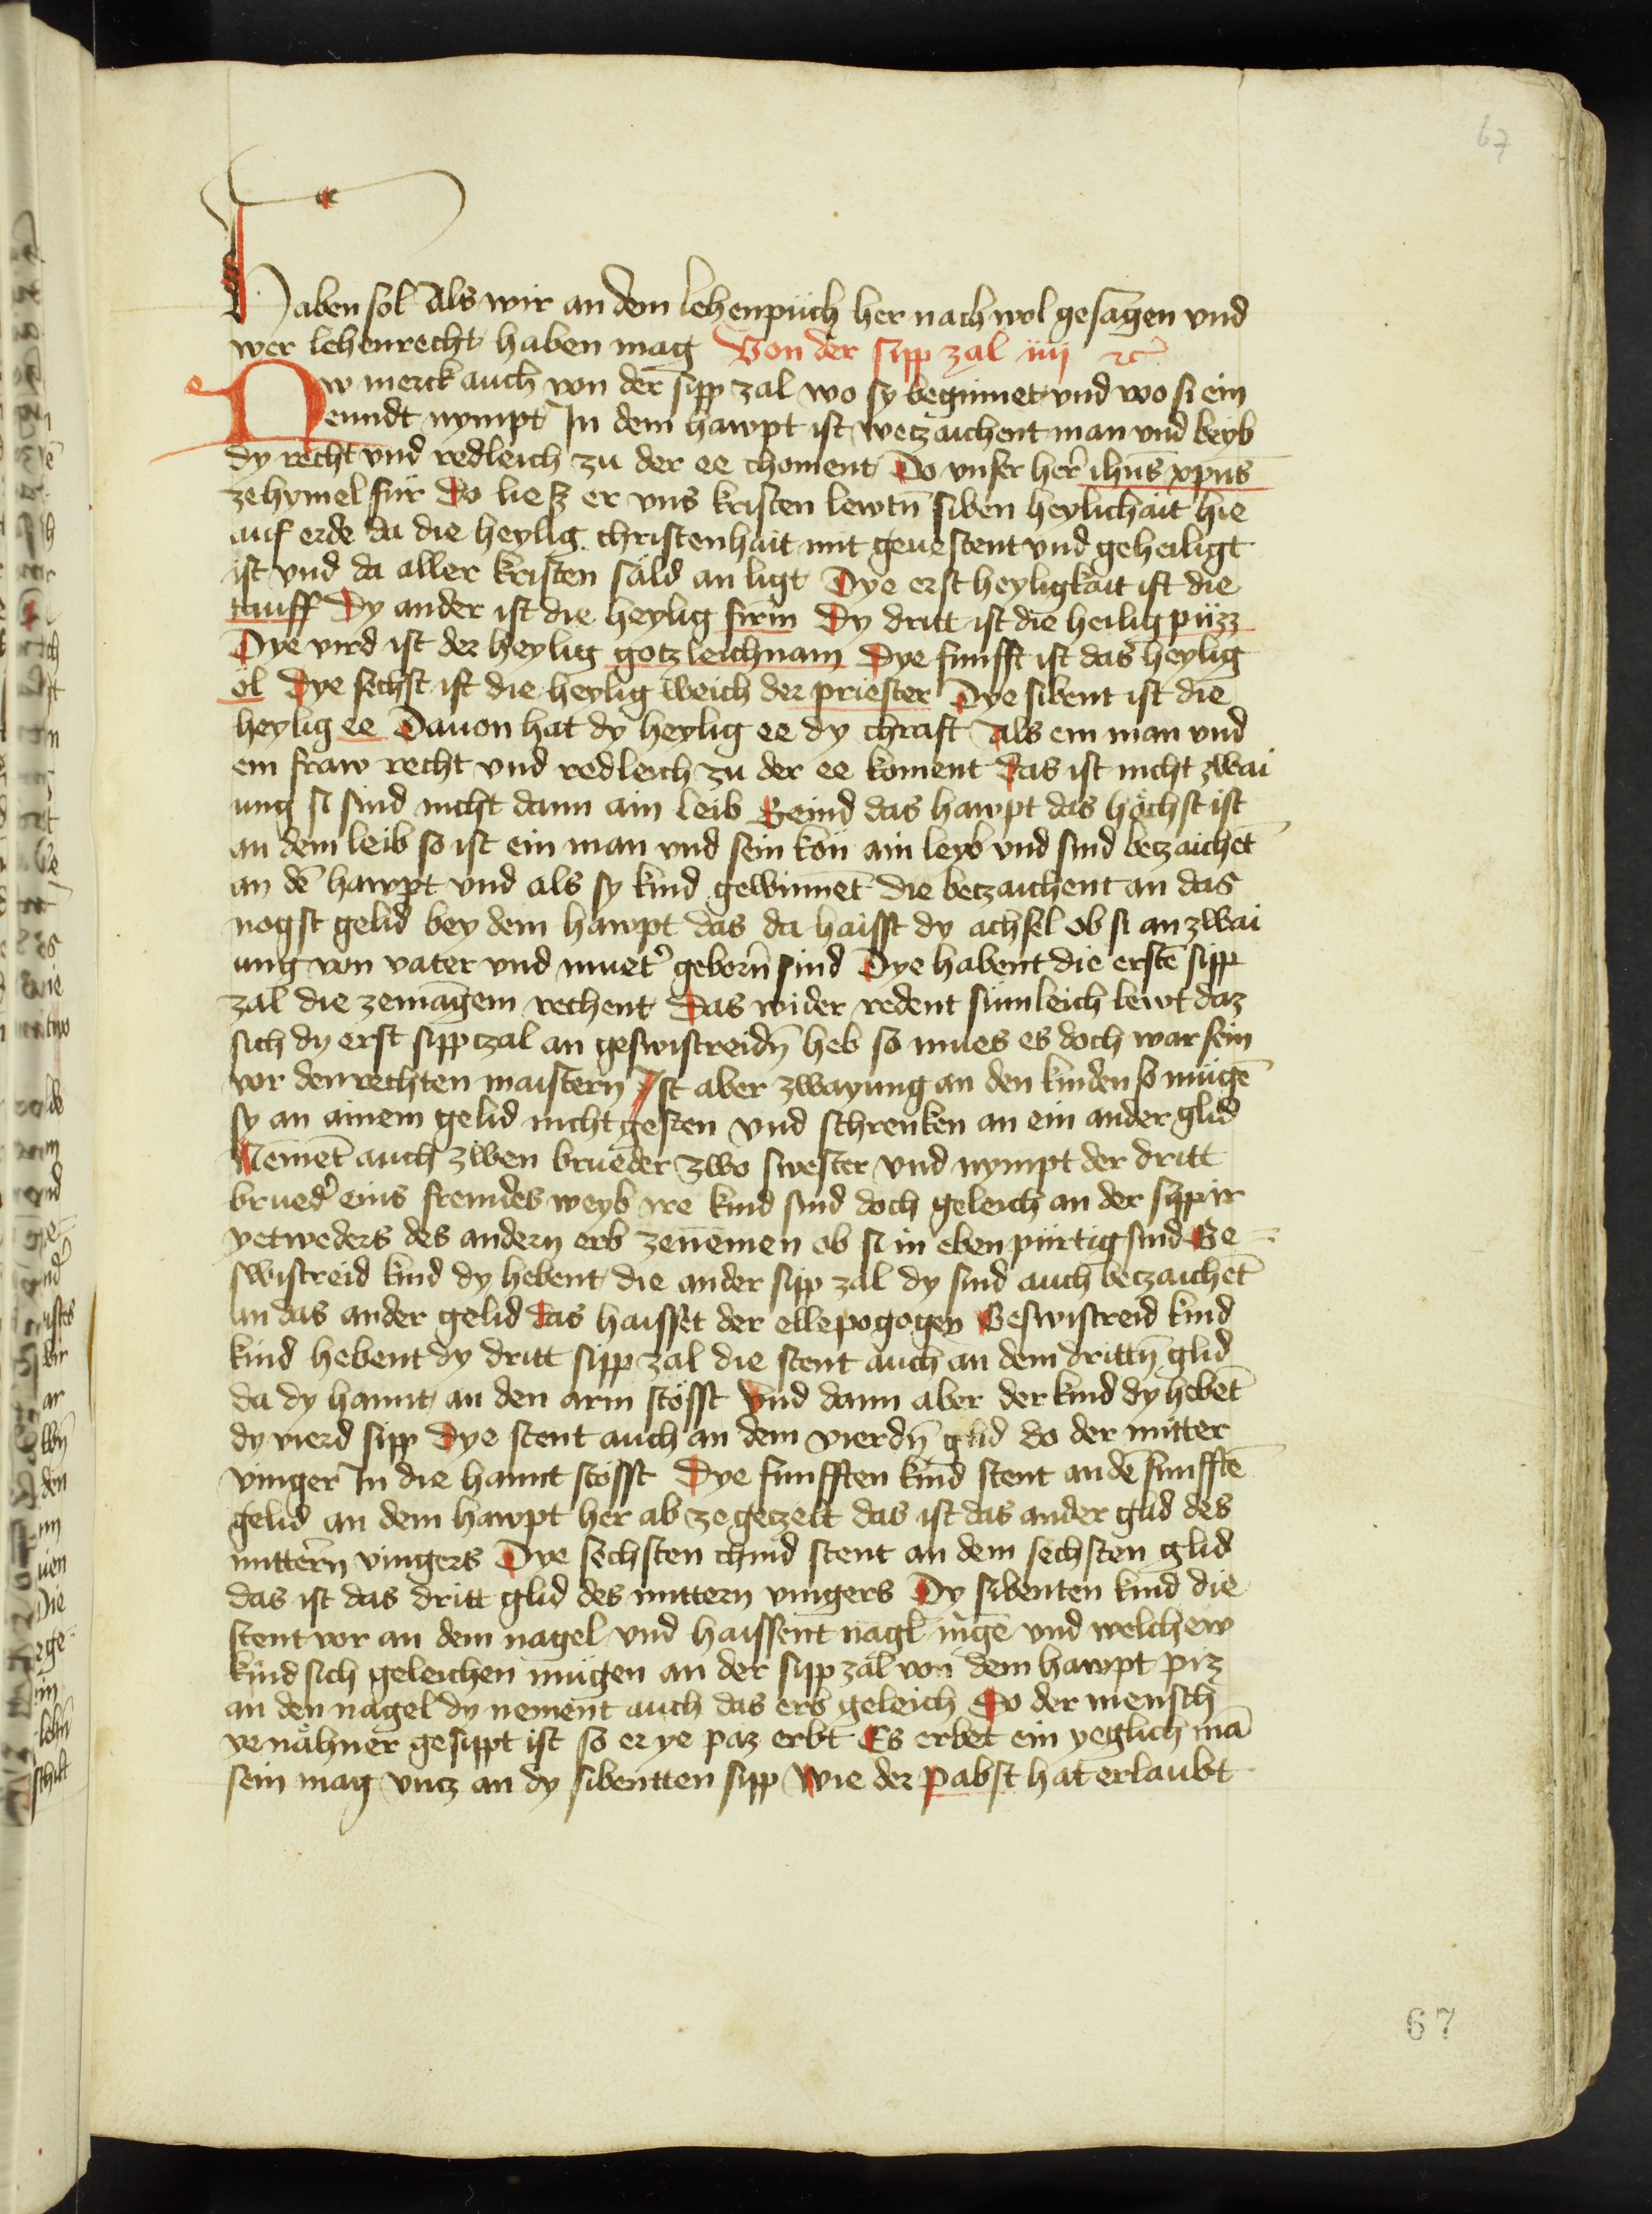 67
Haben sol Als wir an dem lehenpüch her nach wol gesagen vnd
wer lehenrecht haben mag Von der sipp zal iiij ꝛc̄
Nw merck auch von der sipp zal wo sy beginnet vnd wo si ein
enndt nympt In dem hawpt ist wetzaichent man vnd beyb
dy recht vnd redleich zu der ee choment Do vnser her ihūs xpūs
ze hymel für Do liesz er vns kristen lewtn̄ siben heylichait hie
auf erde da die heylig christenhait mit geuestent vnd geheiligt
ist vnd da aller kristen säld an ligt Dye erst heyligkait ist die
tauff Dy ander ist die heylig firm̄ Dy dritt ist die heilig püzz
Dye vird ist der heylig gotzleichnam Dye funfft ist das heylig
öl Dye sechst ist die heylig weich der priester Dye sibent ist die
heylig ee Dauon hat dy heylig ee dy chraft Als ein man vnd
ein fraw recht vnd redleich zu der ee koment Das ist nicht zwai
ung si sind nicht dann ain leib Seind das hawpt das höchst ist
an dem leib so ist ein man vnd sein kon ain leyb vnd sind betzaichet̄
an de̅ hawpt vnd als sy kind gewinnet̄ die betzaichent an das
nogst gelid bey dem hawpt das da haisst dy achsel ob si an zwai
ung von vater vnd muet᾽ geborn̄ sind Dye habent die erste̅ sipp
zal die zemagem rechent Das wider redent sümleich lewt daz
sich dy erst sippczal an geswistreidn̄ heb so mues es doch war sein
vor den rechten maistern Ist aber zwayung an den kinden so müge̅
sy an ainem gelid nicht gesten vnd schrenken an ein ander glid
Nemet̄ auch zwen brueder zwo swester vnd nympt der dritt
brued᾽ eins fremdes weyb ire kind sind doch geleich an der sipp ir
yetweders des andern erb zenemen ob si in eben pürtig sind Ge-
swistreid kind dy hebent die ander sipp zal dy sind auch betzaichet̄
an das ander gelid das haisset der ellepogogen Geswistreid kind
kind hebent dy dritt sipp zal die stent auch an dem drittn̄ glid
da dy hannt an den arm stösst Vnd dann aber der kind dy hebet̄
dy vierd sipp Dye stent auch an dem vierdn̄ glid do der mitter
vinger In die hannt stösst Dye funfften kind stent an de̅ funffte̅
gelid an dem hawpt her ab ze geczelt das ist das ander glid des
mittern vingers Dye sechsten chind stent an dem sechsten glid
das ist das dritt glid des mittern vingers Dy sibenten kind die
stent vor an dem nagel vnd haissent nagl mge̅ vnd welchew
kind sich geleichen mügen an der sipp zal von dem hawpt piz
an den nagel dy nement auch das erb geleich So der mensch
ye nähner gesippt ist so er ye paz erbt Es erbet ein yeglich ma̅
sein mag vncz an dy sibentten sipp Wie der Pabst hat erlaubt
67